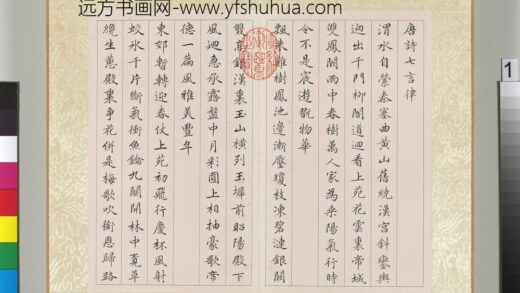 远方书画网-www.yfshuhua.com
1
唐詩七言律
渭水自縈秦塞曲黄山舊繞漢宮斜鑾輿
迥出千門柳閣道迴看上苑花雲裏帝城
雙鳳闕雨中春樹萬人家為乘陽氣行時
令不是宸遊翫物華
飄来雜樹鳳池邊漸壓瓊枝凍碧漣銀闕
雙高銀漢裏玉山横列玉墀前昭陽殿下
風迴急承露盤中月彩圓上相抽豪歌帝
德一篇風雅美豐年
東郊暫轉迎春仗上苑初飛行慶杯風射
蛟氷千片斷氣衝魚鑰九關開林中覓草
纔生蕙殿裏爭花併是梅歌吹銜恩歸路